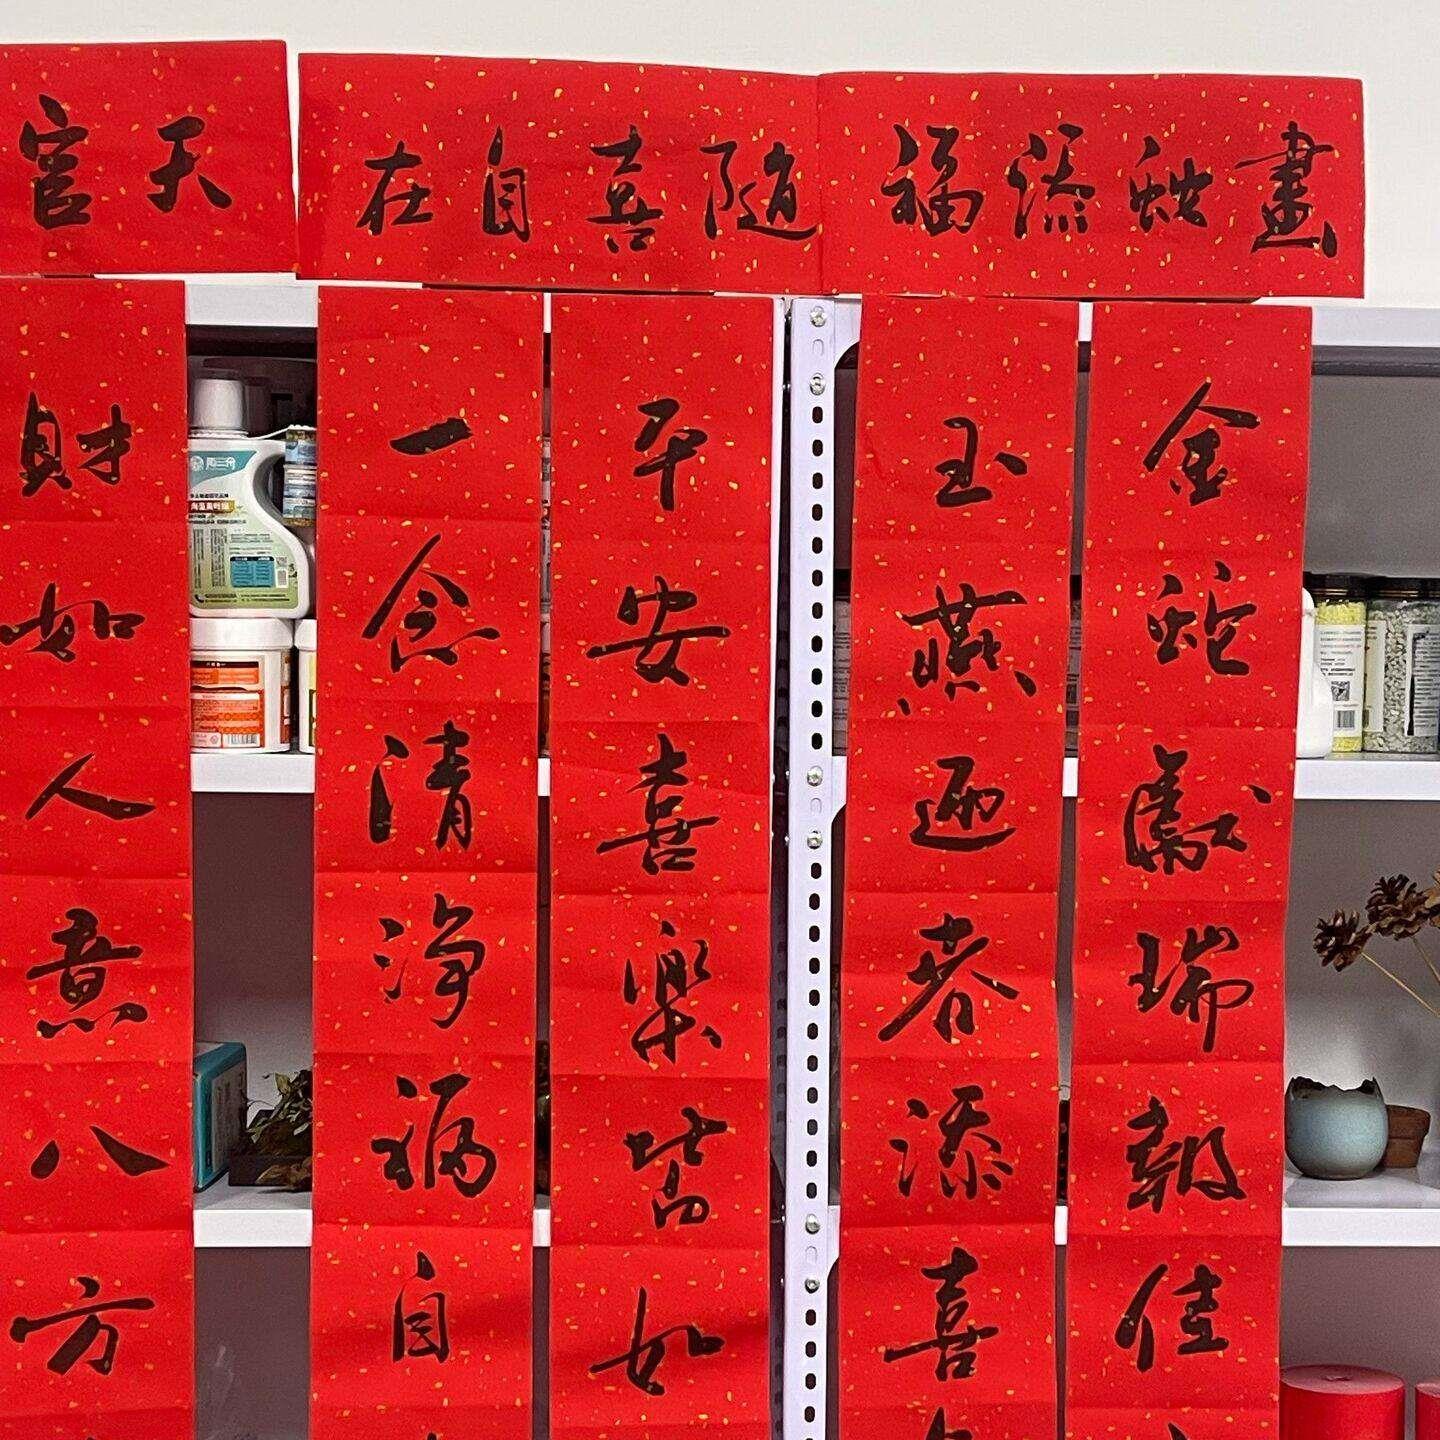 畫蛇添福
隨喜自在
天官
金蛇獻瑞報佳
玉燕迎春添喜
平安喜樂皆如
一念清淨福自
財如人意八方